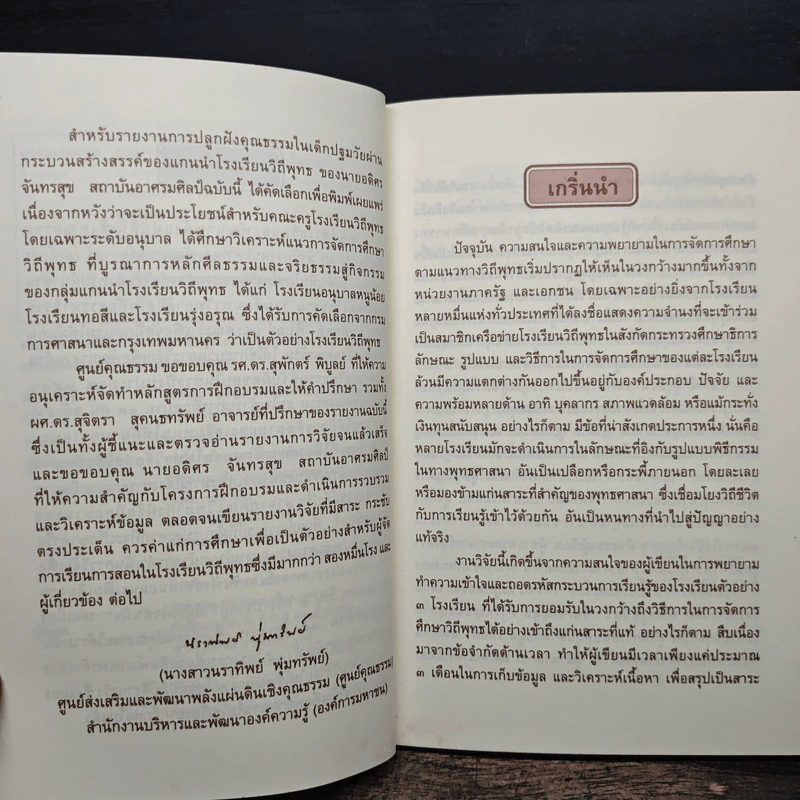 สำหรับรายงานการปลูกฝังคุณธรรมในเด็กปฐมวัยผ่าน
กระบวนสร้างสรรค์ของแกนนำโรงเรียนวิถีพุทธ ของนายอดิศร
จันทรสุข สถาบันอาศรมศิลป์ฉบับนี้ ได้คัดเลือกเพื่อพิมพ์เผยแพร่
เนื่องจากหวังว่าจะเป็นประโยชน์สำหรับคณะครูโรงเรียนวิถีพุทธ
โดยเฉพาะระดับอนุบาล ได้ศึกษาวิเคราะห์แนวการจัดการศึกษา
วิถีพุทธ ที่บูรณาการหลักศีลธรรมและจริยธรรมสู่กิจกรรม
ของกลุ่มแกนนำโรงเรียนวิถีพุทธ ได้แก่ โรงเรียนอนุบาลหนูน้อย
โรงเรียนทอสีและโรงเรียนรุ่งอรุณ ซึ่งได้รับการคัดเลือกจากกรม
การศาสนาและกรุงเทพมหานคร ว่าเป็นตัวอย่างโรงเรียนวิถีพุทธ
ศูนย์คุณธรรม ขอขอบคุณ รศ.ดร.สุพักตร์ พิบูลย์ ที่ให้ความ
อนุเคราะห์จัดทำหลักสูตรการฝึกอบรมและให้คำปรึกษา รวมทั้ง
ผศ.ดร.สุจิตรา สุคนธทรัพย์ อาจารย์ที่ปรึกษาของรายงานฉบับนี้
ซึ่งเป็นทั้งผู้ชี้แนะและตรวจอ่านรายงานการวิจัยจนแล้วเสร็จ
และขอขอบคุณ นายอดิศร จันทรสุข สถาบันอาศรมศิลป์
ที่ให้ความสำคัญกับโครงการฝึกอบรมและดำเนินการรวบรวม
และวิเคราะห์ข้อมูล ตลอดจนเขียนรายงานวิจัยที่มีสาระ กระชับ
ตรงประเด็น ควรค่าแก่การศึกษาเพื่อเป็นตัวอย่างสำหรับผู้จัด
การเรียนการสอนในโรงเรียนวิถีพุทธซึ่งมีมากกว่า สองหมื่นโรง และ
ผู้เกี่ยวข้อง ต่อไป
นราทิพย์ พุ่มทรัพย์
(นางสาวนราทิพย์ พุ่มทรัพย์)
ศูนย์ส่งเสริมและพัฒนาพลังแผ่นดินเชิงคุณธรรม (ศูนย์คุณธรรม)
สำนักงานบริหารและพัฒนาองค์ความรู้ (องค์การมหาชน)
เกริ่นนำ
ปัจจุบัน ความสนใจและความพยายามในการจัดการศึกษา
ตามแนวทางวิถีพุทธเริ่มปรากฏให้เห็นในวงกว้างมากขึ้นทั้งจาก
หน่วยงานภาครัฐ และเอกชน โดยเฉพาะอย่างยิ่งจากโรงเรียน
หลายหมื่นแห่งทั่วประเทศที่ได้ลงชื่อแสดงความจำนงที่จะเข้าร่วม
เป็นสมาชิกเครือข่ายโรงเรียนวิถีพุทธในสังกัดกระทรวงศึกษาธิการ
ลักษณะ รูปแบบ และวิธีการในการจัดการศึกษาของแต่ละโรงเรียน
ล้วนมีความแตกต่างกันออกไปขึ้นอยู่กับองค์ประกอบ ปัจจัย และ
ความพร้อมหลายด้าน อาทิ บุคลากร สภาพแวดล้อม หรือแม้กระทั่ง
เงินทุนสนับสนุน อย่างไรก็ตาม มีข้อที่น่าสังเกตประการหนึ่ง นั่นคือ
หลายโรงเรียนมักจะดำเนินการในลักษณะที่อิงกับรูปแบบพิธีกรรม
ในทางพุทธศาสนา อันเป็นเปลือกหรือกระพี้ภายนอก โดยละเลย
หรือมองข้ามแก่นสาระที่สำคัญของพุทธศาสนา ซึ่งเชื่อมโยงวิถีชีวิต
กับการเรียนรู้เข้าไว้ด้วยกัน อันเป็นหนทางที่นำไปสู่ปัญญาอย่าง
แท้จริง
งานวิจัยนี้เกิดขึ้นจากความสนใจของผู้เขียนในการพยายาม
ทำความเข้าใจและถอดรหัสกระบวนการเรียนรู้ของโรงเรียนตัวอย่าง
๓ โรงเรียน ที่ได้รับการยอมรับในวงกว้างถึงวิธีการในการจัดการ
ศึกษาวิถีพุทธได้อย่างเข้าถึงแก่นสาระที่แท้ อย่างไรก็ตาม สืบเนื่อง
มาจากข้อจำกัดด้านเวลา ทำให้ผู้เขียนมีเวลาเพียงแค่ประมาณ
๓ เดือนในการเก็บข้อมูล และวิเคราะห์เนื้อหา เพื่อสรุปเป็นสาระ